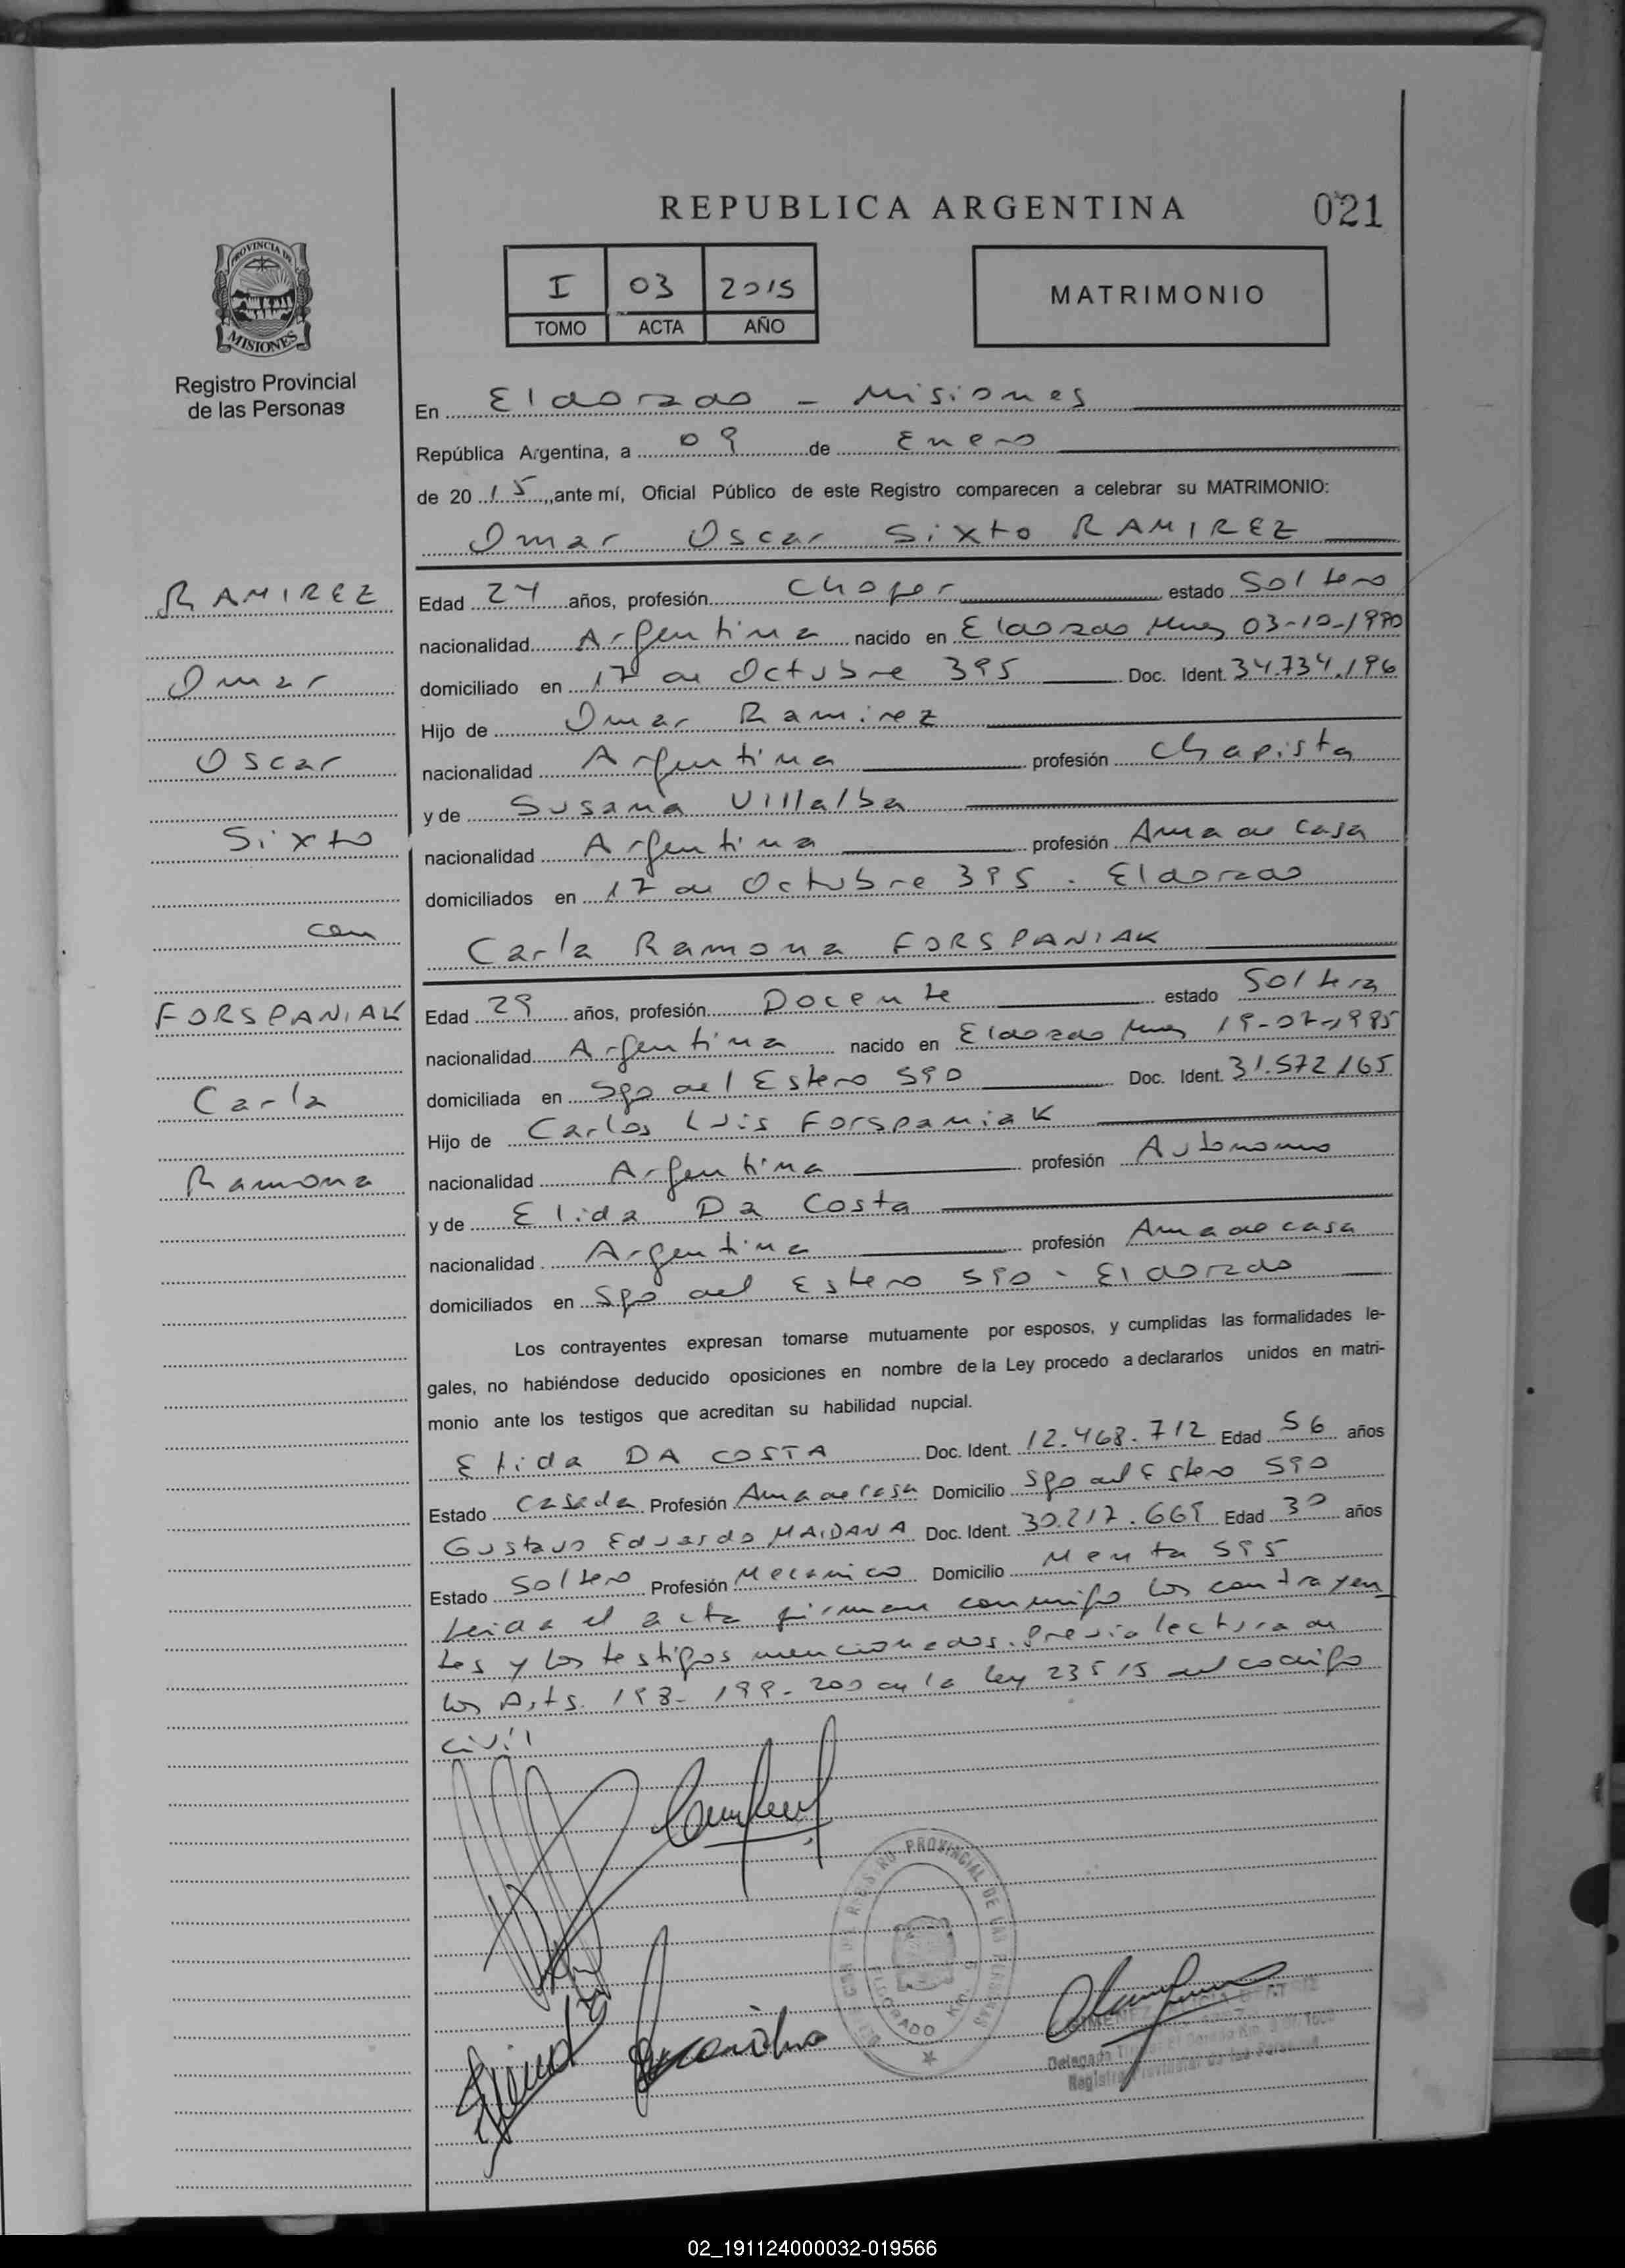 REPUBLICA ARGENTINA
021
PROVINCIA DE
MISIONES
Registro Provincial
de las Personas
I 03 2015
TOMO ACTA AÑO
MATRIMONIO
En Eldorado - Misiones
República Argentina, a 09 de Enero
de 20 15, ante mí, Oficial Público de este Registro comparecen a celebrar su MATRIMONIO:
Omar Oscar Sixto RAMIREZ
RAMIREZ
Omar
Oscar
Sixto
con
FORSPANIAK
Carla
Ramona
Edad 24 años, profesión Chofer estado Soltero
nacionalidad Argentina nacido en Eldorado Mnes 03-10-1990
domiciliado en 17 de Octubre 395 Doc. Ident. 34.734.196
Hijo de Omar Ramirez
nacionalidad Argentina profesión Chapista
y de Susana Villalba
nacionalidad Argentina profesión Ama de casa
domiciliados en 17 de Octubre 395 - Eldorado
Carla Ramona FORSPANIAK
Edad 29 años, profesión Docente estado Soltera
nacionalidad Argentina nacido en Eldorado Mnes 19-07-1985
domiciliada en Sgo del Estero 590 Doc. Ident. 31.572.165
Hijo de Carlos Luis Forspaniak
nacionalidad Argentina profesión Autonomo
y de Elida Da Costa
nacionalidad Argentina profesión Ama de casa
domiciliados en Sgo del Estero 590 - Eldorado
Los contrayentes expresan tomarse mutuamente por esposos, y cumplidas las formalidades le-
gales, no habiéndose deducido oposiciones en nombre de la Ley procedo a declararlos unidos en matri-
monio ante los testigos que acreditan su habilidad nupcial.
Elida DA COSTA Doc. Ident. 12.468.712 Edad 56 años
Estado Casada Profesión Ama de casa Domicilio Sgo del Estero 590
Gustavo Eduardo MAIDANA Doc. Ident. 30.217.669 Edad 30 años
Estado Soltero Profesión Mecanico Domicilio Menta 595
Leida el acta firman conmigo los contrayen
tes y los testigos mencionados. Previa lectura de
los Arts. 198- 199- 200 de la ley 23515 del codigo
civil
REGISTRO PROVINCIAL DE LAS PERSONAS
ELDORADO Km. 
Registro Provincial de las Personas
02_191124000032-019566